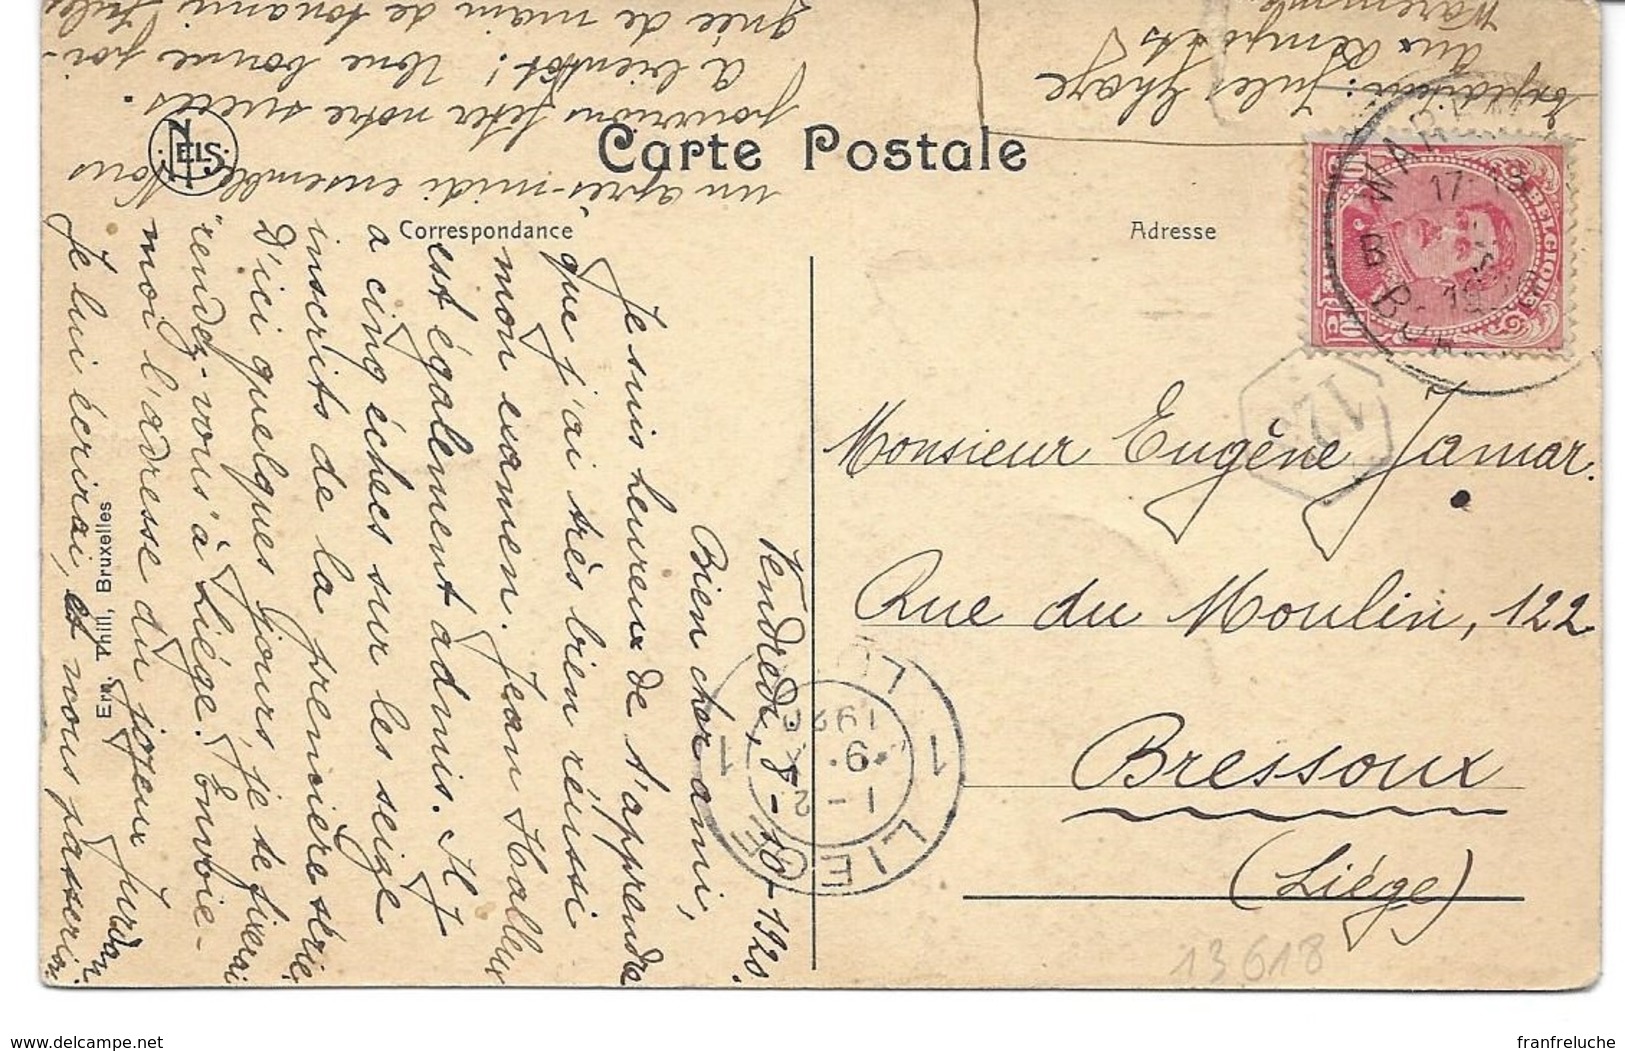 Carte Postale
Correspondance
Adresse
NELS
Ern. Thill, Bruxelles
Vendredi, 8-10-1920.
Bien cher ami,
Je suis heureux de t'apprendre
que j'ai très bien réussi
mon examen. Jean Halleux
est également admis. Il y
a cinq échecs sur les seize
inscrits de la première série.
D'ici quelques jours, je te fixerai
"rendez-vous" à Liége. Envoie-
moi l'adresse du joyeux Jurdan
Je lui écrirai, et nous passerions
un après-midi ensemble. Nous
pourrions fêter notre succès.
A bientôt! Une bonne poi-
gnée de main de ton ami Jules
Expéditeur: Jules
aux Remparts
Waremme
Monsieur Eugène Jamar.
Rue du Moulin, 122
Bressoux
(Liége)
BELGIQUE
10 c 10
WAREM
17-18
B
LIEGE
1 1
1920
13618
delcampe.net
franfreluche